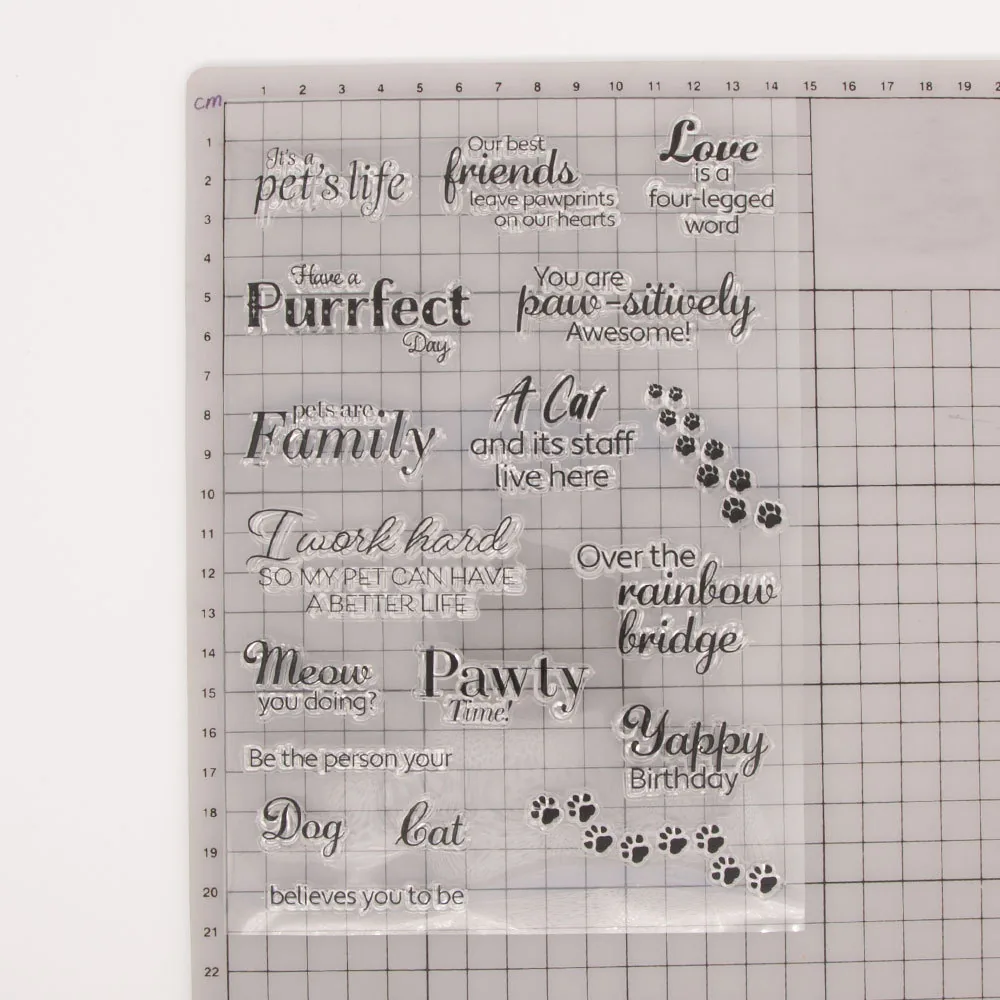 1 2 3 4 5 6 7 8 9 10 11 12 13 14 15 16 17 18 19
cm
1
2
3
4
5
6
7
8
9
10
11
12
13
14
15
16
17
18
19
20
21
22
It's a
pet's life
Our best
friends
leave pawprints
on our hearts
Love
is a
four-legged
word
Have a
Purrfect
Day
You are
paw-sitively
Awesome!
pets are
Family
A Cat
and its staff
live here
I work hard
SO MY PET CAN HAVE
A BETTER LIFE
Over the
rainbow
bridge
Meow
you doing?
Pawty
Time!
Yappy
Birthday
Be the person your
Dog Cat
believes you to be